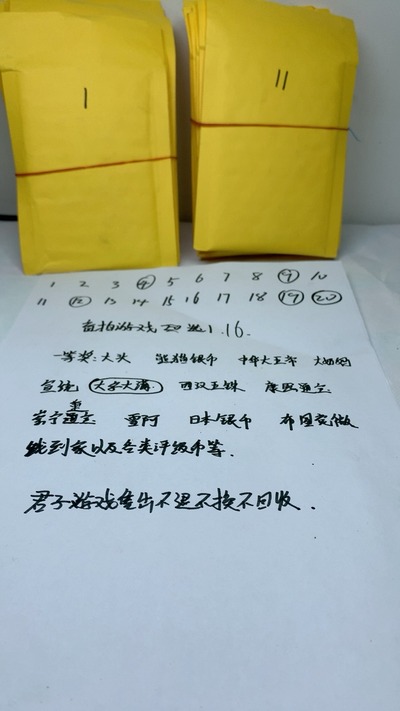 1
11
1 2 3 4 5 6 7 8 9 10
11 12 13 14 15 16 17 18 19 20
直拍游戏 1.16.
一等奖:大头 熊猫银币 中华大五帝
宣统 大全大满 西汉五铢 康熙通宝
崇宁重宝 雪阿 日本银币
钱到家以及各类评级币等.
君子游戏售出不退不换不回收.